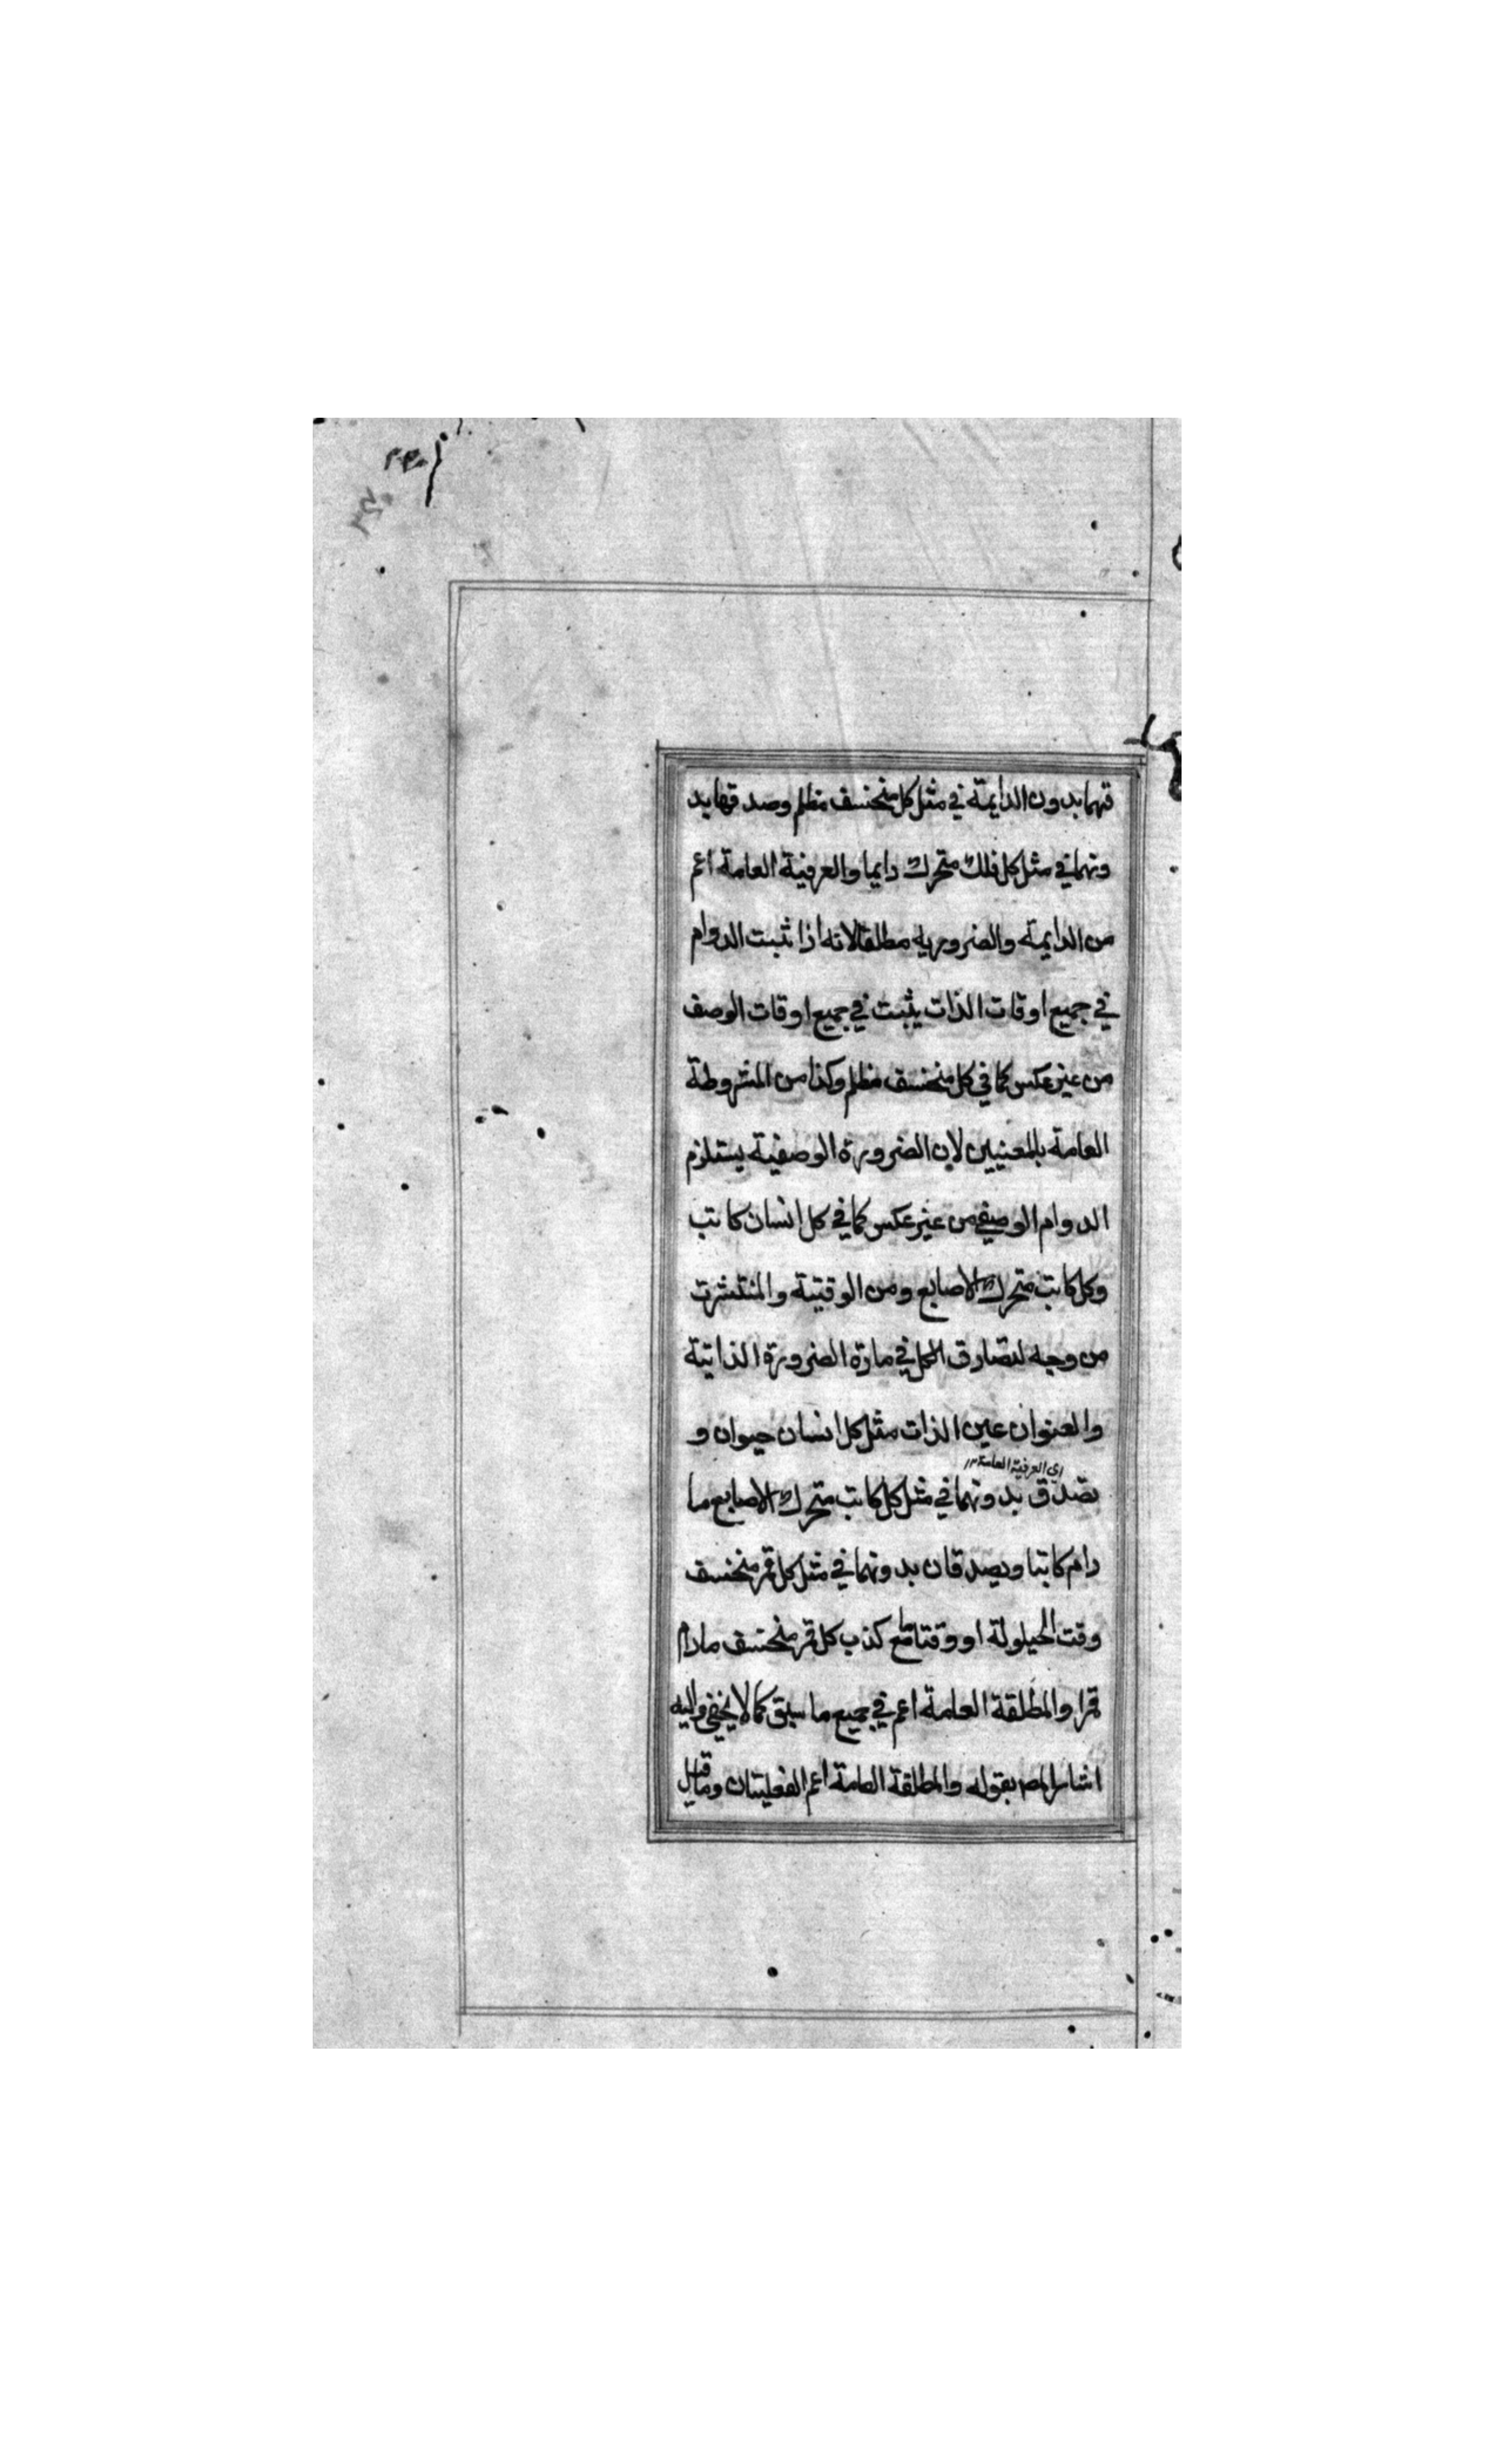 قهما بدون الدايمة في مثل كل منخسف مظلم وصد قها بد
ونهما في مثل كل فلك متحرك دايما والعرفية العامة اعم
من الدايمة والضروريه مطلقا لانه اذا ثبت الدوام
في جميع اوقات الذات يثبت في جميع اوقات الوصف
من غير عكس كما في كل منخسف مظلم وكذا من المشروطة
العامة بالمعنيين لان الضرورة الوصفية يستلزم
الدوام الوصفي من غير عكس كما في كل انسان كاتب
وكل كاتب متحرك الاصابع ومن الوقتية والمنتشرة
من وجه لتصادق الكل في مادة الضرورة الذاتية
والعنوان عين الذات مثل كل انسان حيوان و
اى العرفية العامة ١٢
تصدق بدونهما في مثل كل كاتب متحرك الاصابع ما
دام كاتبا ويصدقان بدونهما في مثل كل قمر منخسف
وقت الحيلولة او وقتا ما مع كذب كل قمر منخسف مادام
قمرا والمطلقة العامة اعم في جميع ما سبق كما لا يخفى واليه
اشار المصـ بقوله والمطلقة العامة اعم الفعليتان وما قيل